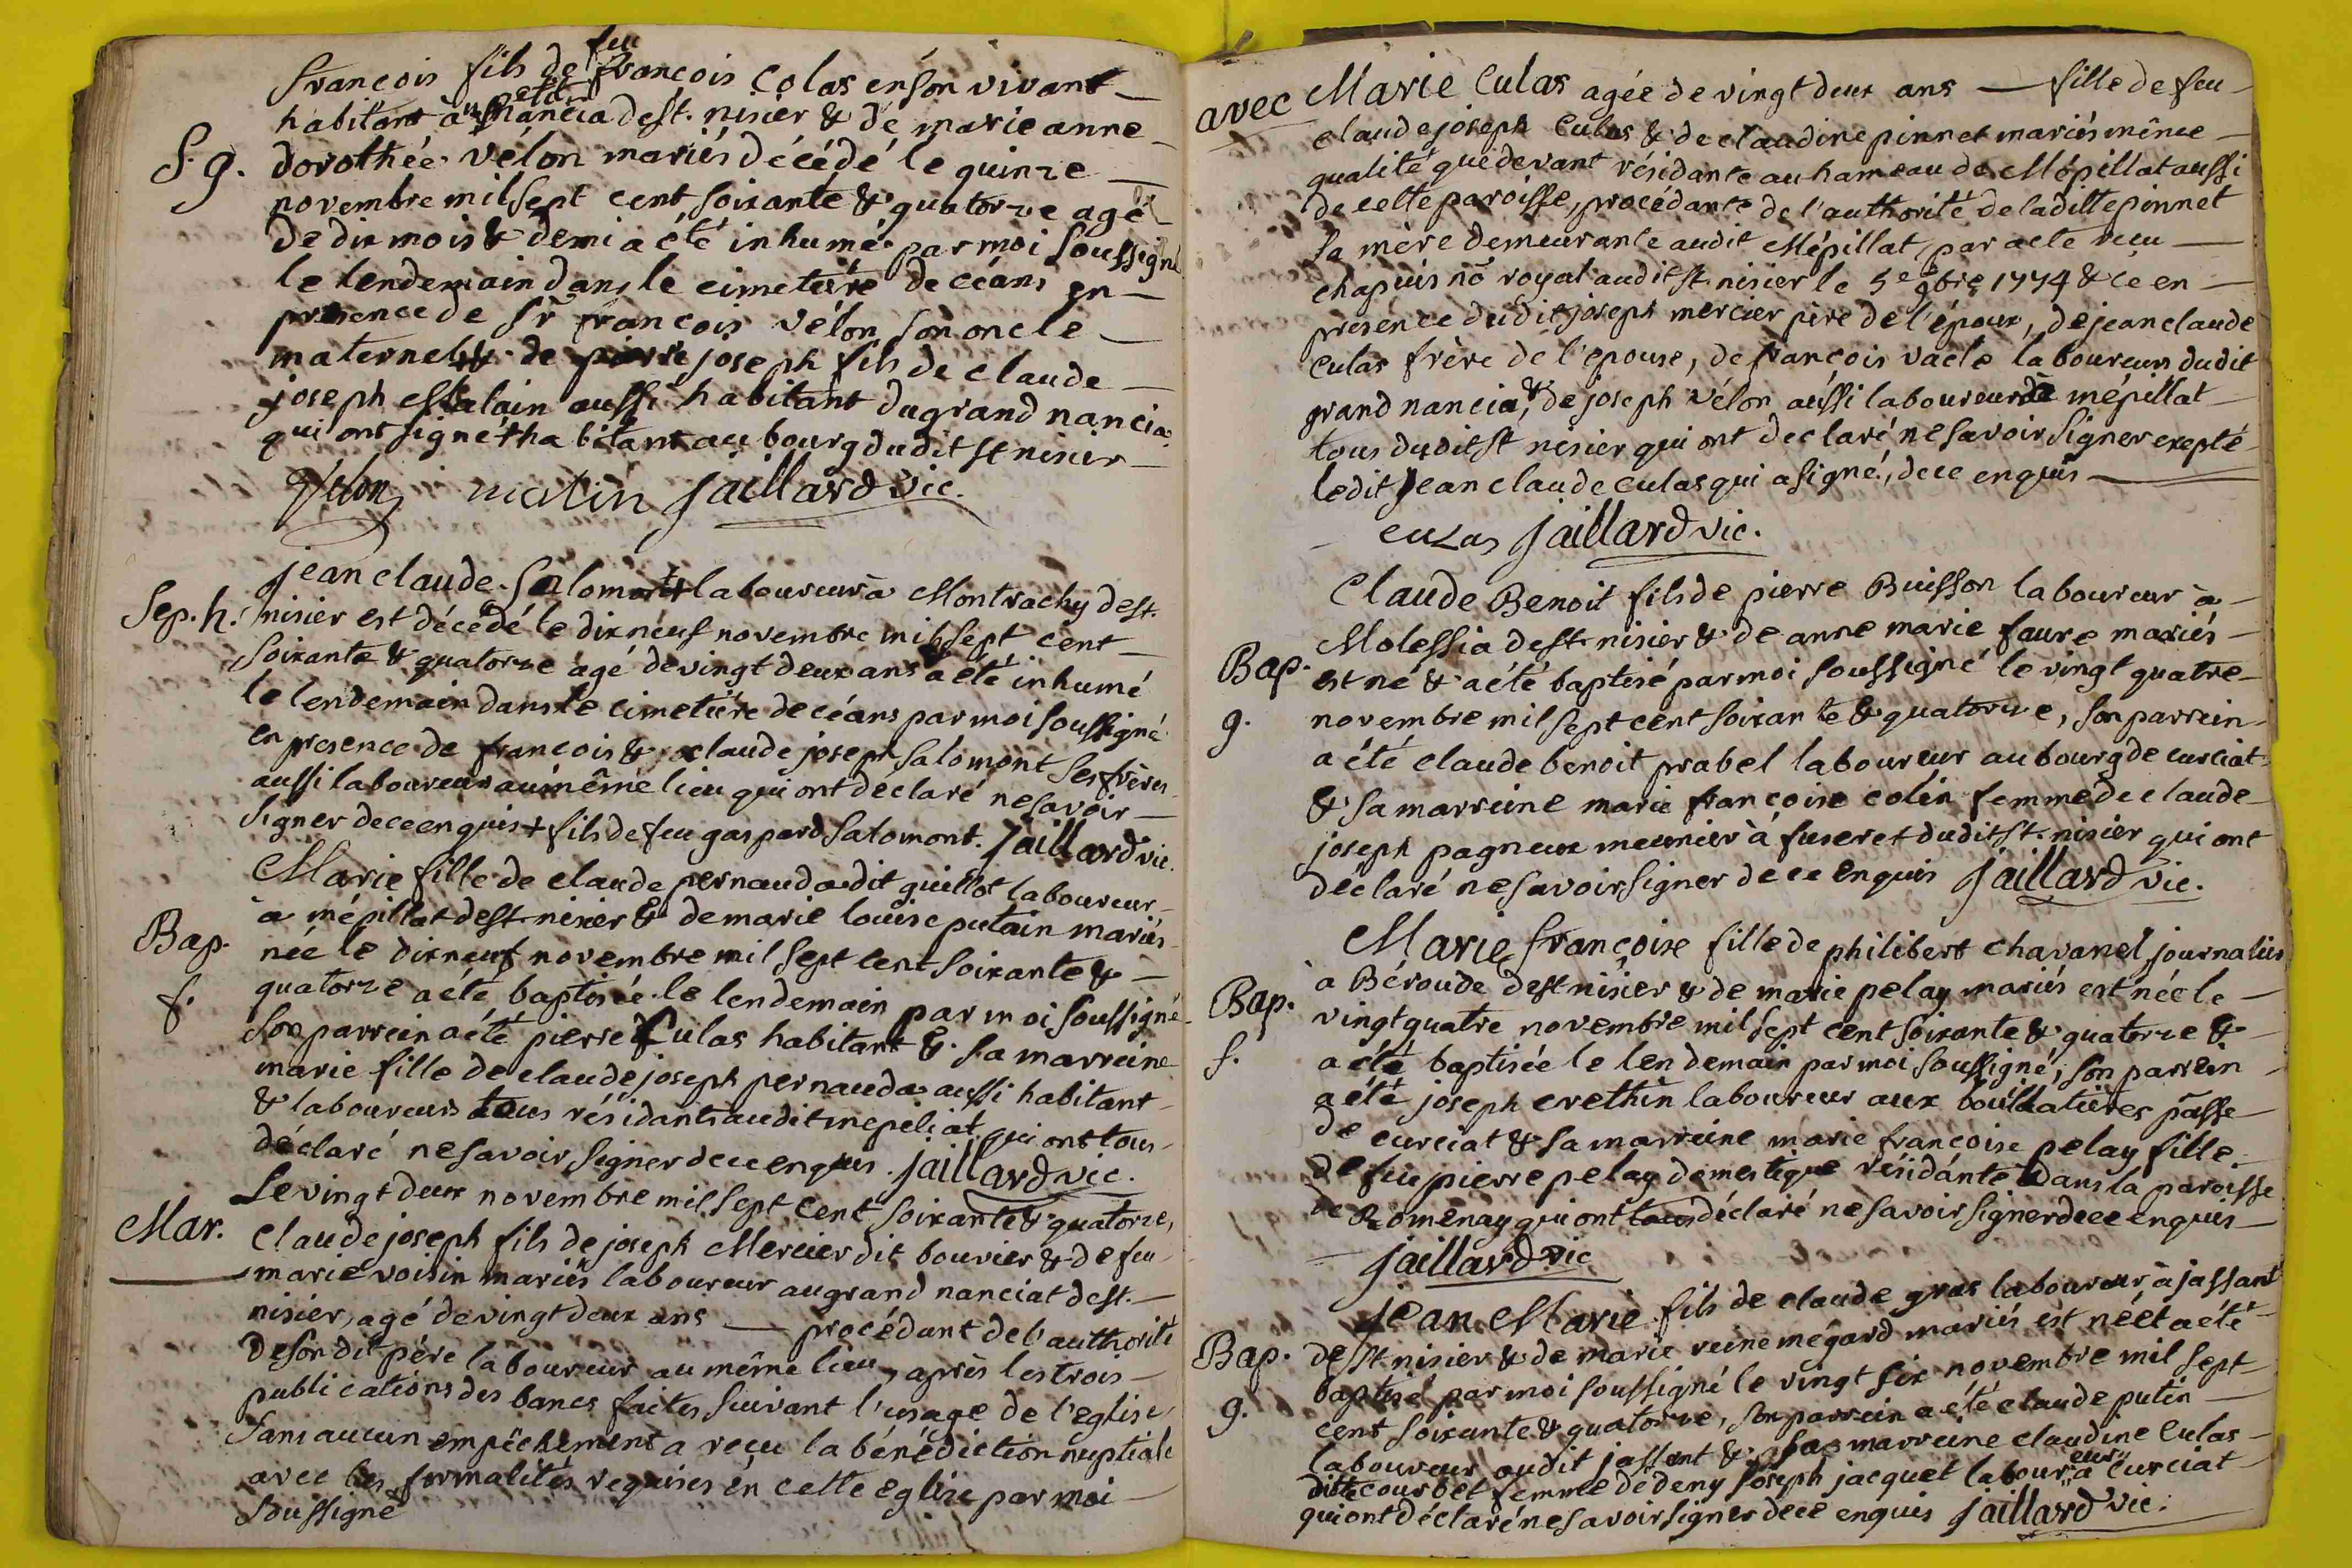 françois fils de feu françois Colas en son vivant
habitant à petit nancia de st. nisier & de marie anne
S. g. dorothée vélon mariés décédé le quinze
novembre mil sept cent soixante & quatorze agé
de dix mois & demi a été inhumé par moi soussigné
le lendemain dans le cimetière de céans en
présence de sr françois vélon son oncle
maternel & de pierre joseph fils de claude
joseph Malain aussi habitant du grand nancia
qui ont signé + habitant au bourg dudit st nisier
Vélon matin jaillard vic.
jean claude Salomont + laboureur à Montrachy de st.
Sep. h. nisier est décédé le dix neuf novembre mil sept cent
soixante & quatorze agé de vingt deux ans a été inhumé
le lendemain dans le cimetière de céans par moi soussigné
en presence de françois & claude joseph salomont ses frères
aussi laboureurs au même lieu qui ont déclaré ne savoir
signer de ce enquis + fils de feu gaspard salomont. jaillard vic.
Marie fille de claude pernauda dit guillot laboureur
à mépillat de st nisier & de marie louise putain mariés
Bap. née le dix neuf novembre mil sept cent soixante &
f. quatorze a été baptisée le lendemain par moi soussigné
son parrein a été pierre Culas habitant & sa marreine
marie fille de claude joseph pernauda aussi habitant
& laboureurs tous résidants audit mepeliat qui ont tous
déclaré ne savoir signer de ce enquis. jaillard vic.
Le vingt deux novembre mil sept cent soixante & quatorze,
Mar. Claude joseph fils de joseph Mercier dit bouvier & de feu
marie voisin mariés laboureur au grand nanciat de st.
nisier, agé de vingt deux ans — procédant de l'authorité
de son dit père laboureur au même lieu, après les trois
publications des bancs faites suivant l'usage de l'eglise,
sans aucun empêchement a reçu la bénédiction nuptiale
avec les formalités requises en cette eglise par moi
soussigné
avec Marie Culas agée de vingt deux ans — fille de feu
claude joseph Culas & de claudine pinnet mariés même
qualité que devant résidante au hameau de Mépillat aussi
de cette paroisse, procédante de l'authorité de la ditte pinnet
sa mère demeurante audit Mépillat, par acte reçu
chapuis nō royal audit st. nisier le 5e 9bre 1774 & ce en
présence dudit joseph mercier père de l'époux, de jean claude
Culas frère de l'epouse, de françois vacle laboureurs dudit
grand nancia, & de joseph vélon aussi laboureur de mépillat
tous dudit st nisier qui ont declaré ne savoir signer exepté
ledit jean claude culas qui a signé, de ce enquis
culas jaillard vic.
Claude Benoit fils de pierre Buisson laboureur à
Molessia de st nisier & de anne marie faure mariés
Bap. est né & a été baptisé par moi soussigné le vingt quatre
g. novembre mil sept cent soixante & quatorze, son parrein
a été claude benoit prabel laboureur au bourg de curciat
& sa marreine marie françoise colin femme de claude
joseph pagneux meunier à fuseret dudit st. nisier qui ont
déclaré ne savoir signer de ce enquis jaillard vic.
Marie françoise fille de philibert chavanel journalier
à Béroude de st nisier & de marie pelay mariés est née le
Bap. vingt quatre novembre mil sept cent soixante & quatorze &
f. a été baptisée le lendemain par moi soussigné, son parrein
a été joseph crethin laboureur aux bouillatières pāsse
de curciat & sa marreine marie françoise pelay fille
de feu pierre pelay domestique résidante dans la paroisse
de Romenay qui ont tous déclaré ne savoir signer de ce enquis
jaillard vic
jean Marie fils de claude gras laboureur à jassant
Bap. de st nisier & de marie reine mégard mariés est né et a été
baptisé par moi soussigné le vingt six novembre mil sept
g. cent soixante & quatorze, son parrein a été claude putin
laboureur audit jassant & sa marreine claudine Culas
ditte courbet femme de deny joseph jacquet laboureur à curciat
qui ont déclaré ne savoir signer de ce enquis jaillard vic.